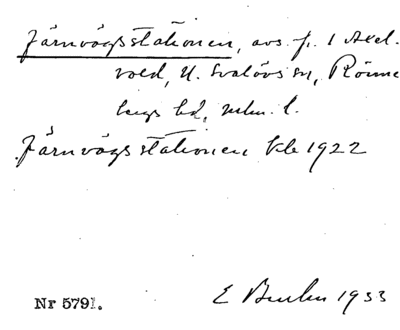 Järnvägsstationen, avs. fr. 1 Axel-
vold, N. Svalövs sn, Rönne
bergs hd, mlm. l.
Järnvägsstationen kb 1922
Nr 5791. E 1933